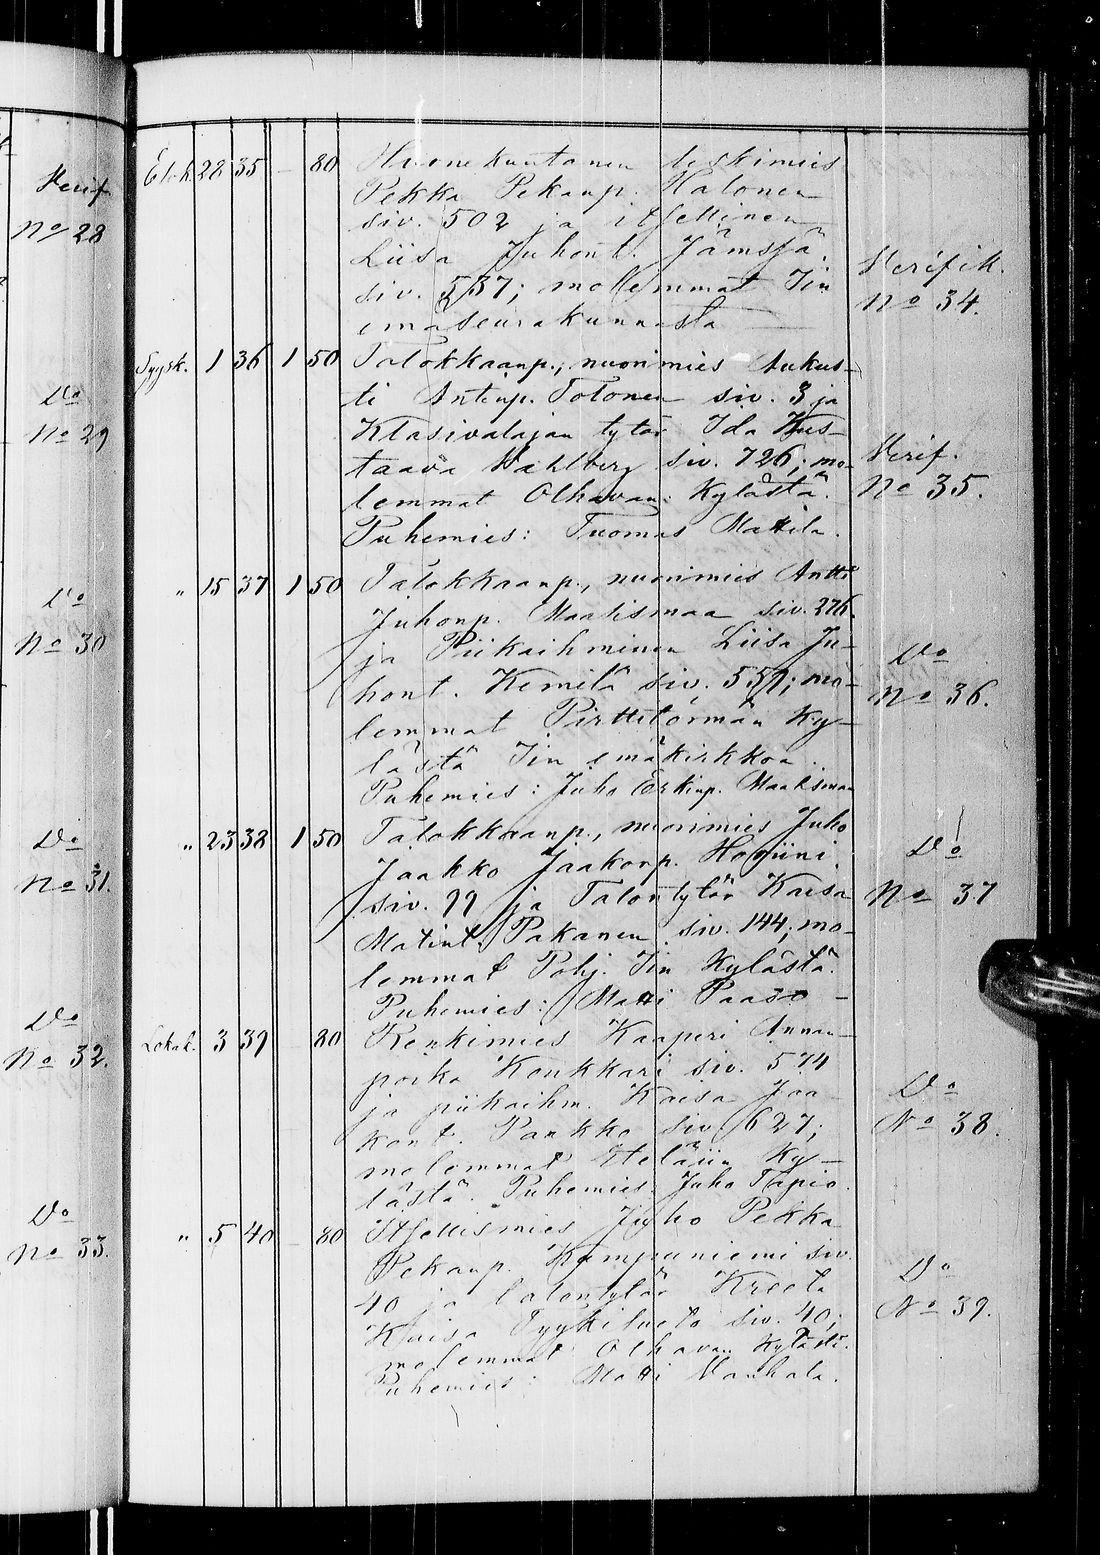 Verif.
No 28
Do
No 29
Do
No 30
Do
No 31.
Do
No 32.
Do
No 33.
Elok. 28 35 – 80 Huonekuntanen leskimies
Pekka Pekanp. Halonen
siv. 502 ja itsellinen
Liisa Juhont. Jämsjä,
siv. 537; molemmat Iin
emäseurakunnasta
Verifik.
No 34.
Syysk. 1 36 1 50 Talokkaanp., nuorimies Aukus-
ti Antinp. Tolonen siv. 3 ja
Klasivalajan tytär Ida Kus-
taava Wahlberg siv. 726; mo-
lemmat Olhavan Kylästä.
Puhemies: Tuomas Mattila.
Verif.
No 35.
" 15 37 1 50 Talokkaanp., nuorimies Antti
Juhonp. Maalismaa siv. 276.
ja Piikaihminen Liisa Ju-
hont. Kemilä siv. 559; mo-
lemmat Pirttitörmän Ky-
lästä Iin emäkirkkoa.
Puhemies: Juho Erkinp. Maalismaa
Do
No 36.
" 23 38 1 50 Talokkaanp., nuorimies Juho
Jaakko Jaakonp.
siv. 99 ja Talontytär Kaisa
Matint. Pakanen siv. 144; mo-
lemmat Pohj. Iin Kylästä.
Puhemies: Matti Paaso –
Do
No 37
Lokak. 3 39 80 Renkimies Kaaperi Annan-
poika Konkkari siv. 574
ja piikaihm. Kaisa Jaa-
kont. Parkko siv. 627;
molemmat Eteläiin Ky-
lästä. Puhemies: Juho Tapio.
Do
No 38.
" 5 40 – 80 Itsellismies Juho Pekka
Pekanp. Kumpuniemi siv.
40 ja talontytär Kreeta
Kaisa Tyykiluoto siv. 40;
molemmat Olhavan Kylästä.
Puhemies: Matti Vanhala.
Do
No 39.